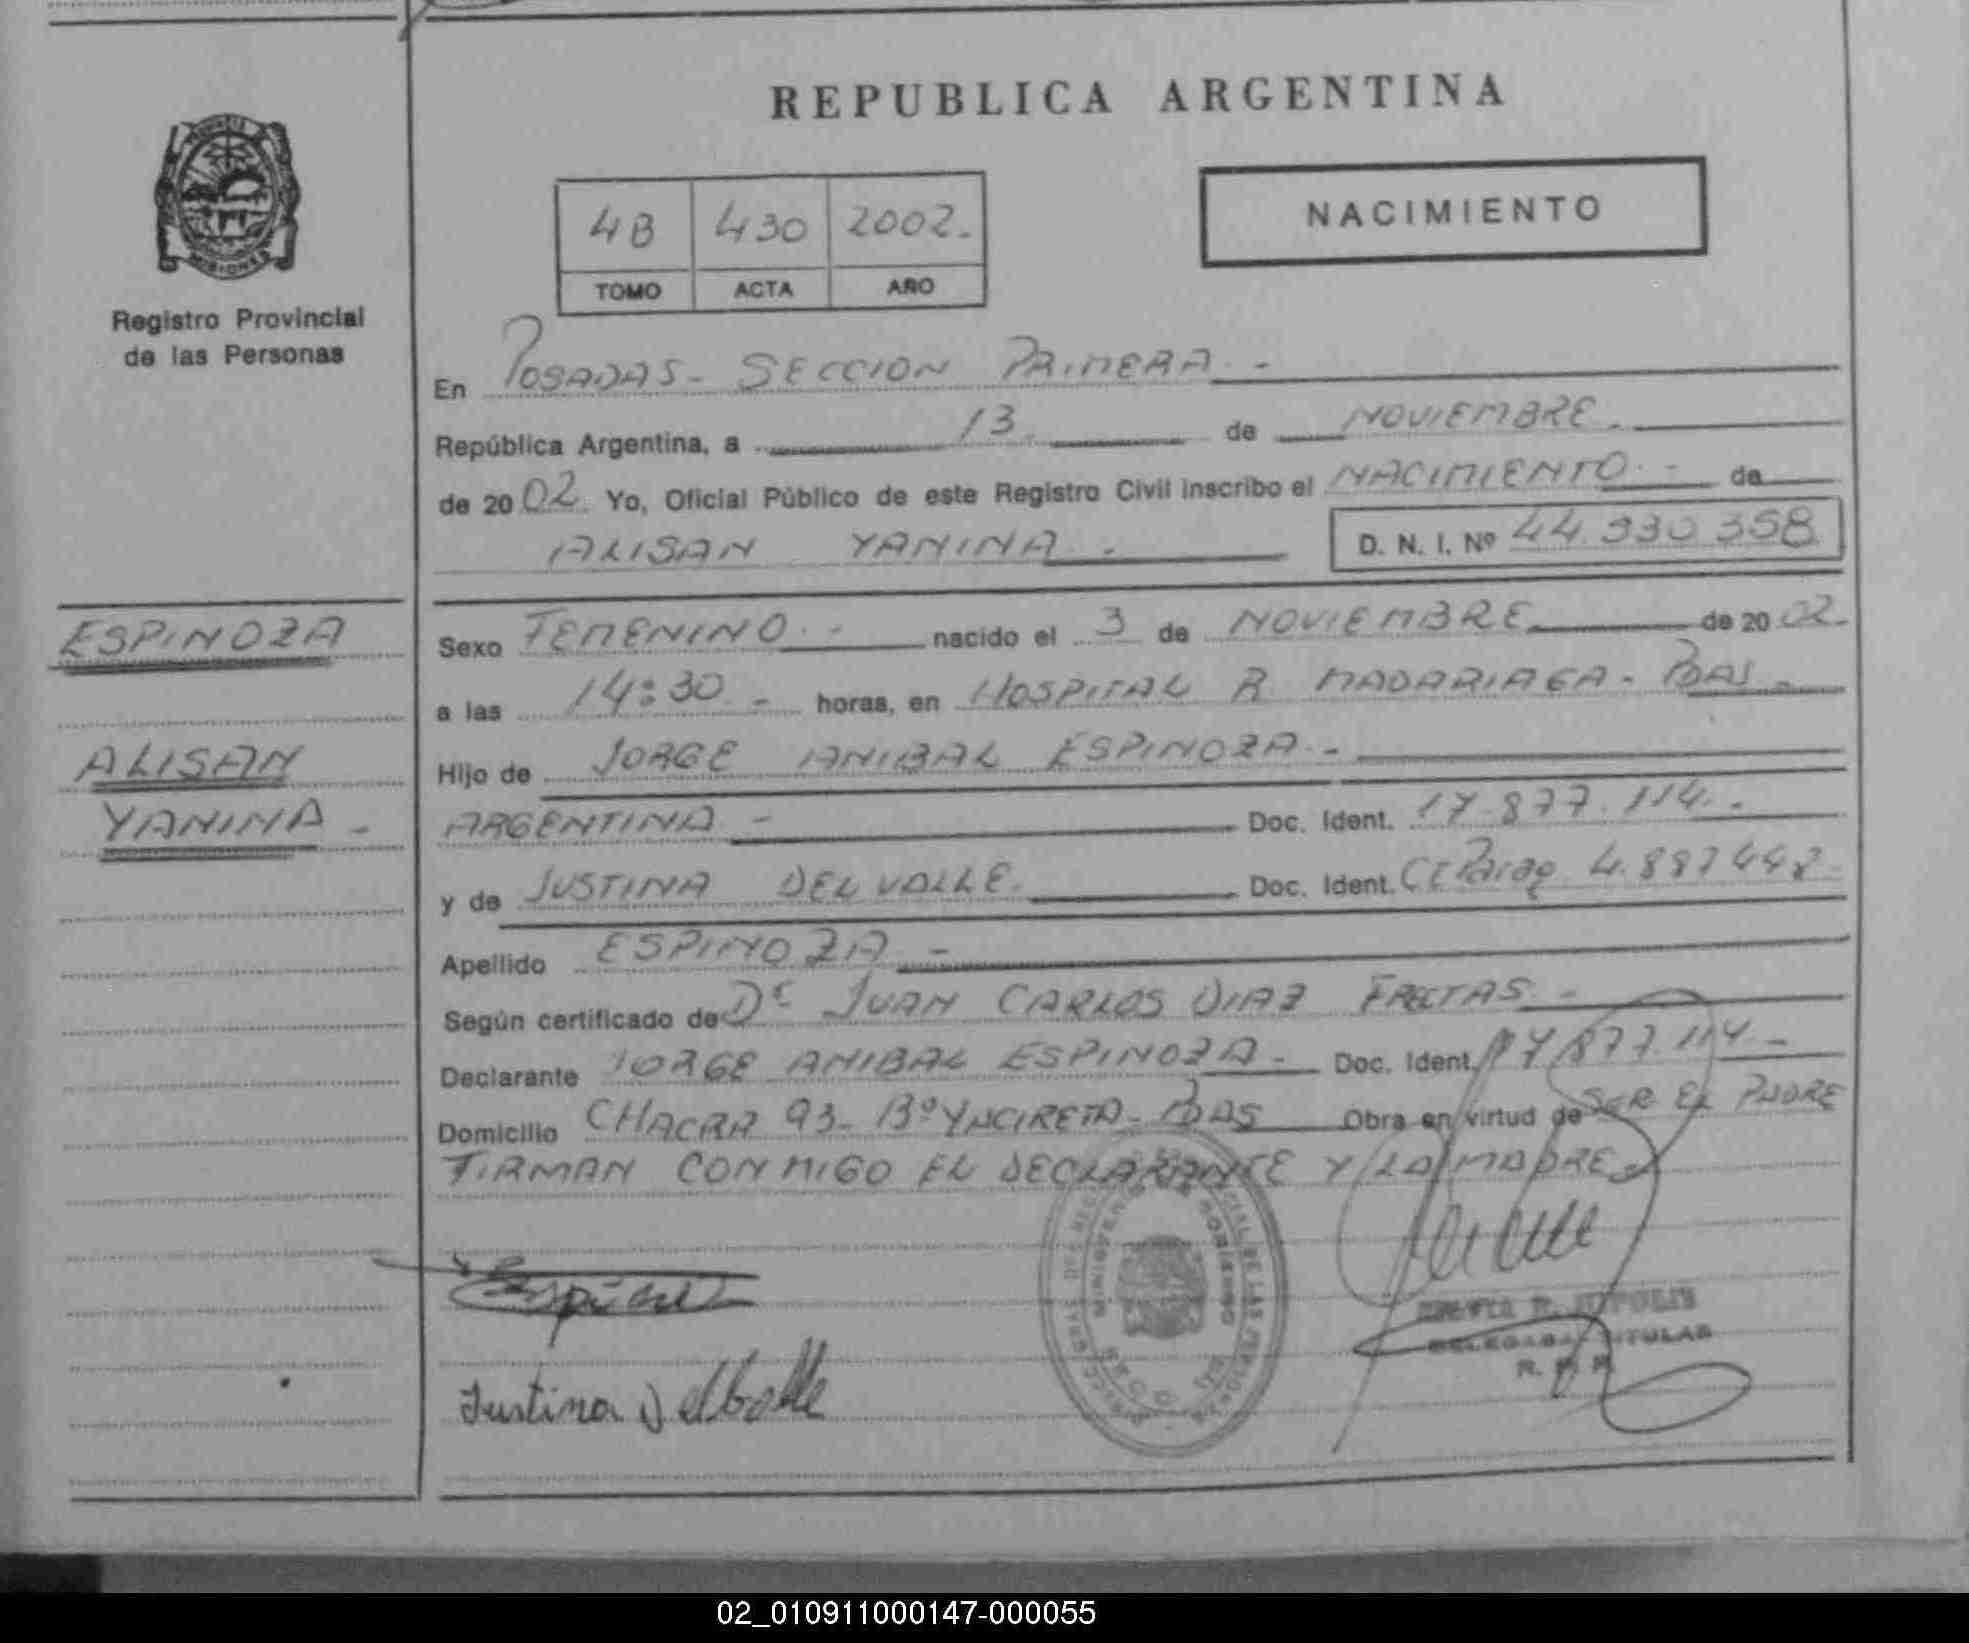 REPUBLICA ARGENTINA
PROVINCIA
MISIONES
Registro Provincial
de las Personas
4B 430 2002.-
TOMO ACTA AÑO
NACIMIENTO
En POSADAS - SECCION PRIMERA.-
República Argentina, a 13 de NOVIEMBRE.
de 2002. Yo, Oficial Público de este Registro Civil inscribo el NACIMIENTO.- de
ALISAN YANINA.- D. N. I. Nº 44.930.358
ESPINOZA
ALISAN
YANINA -
Sexo FEMENINO.- nacido el 3 de NOVIEMBRE de 2002.
a las 14:30.- horas, en HOSPITAL R MADARIAGA - PDAS -
Hijo de JORGE ANIBAL ESPINOZA.-
ARGENTINA - Doc. Ident. 17.877.114.-
y de JUSTINA DEL VALLE. Doc. Ident. CI Parag 4.887448
Apellido ESPINOZA -
Según certificado de Dr JUAN CARLOS DIAZ FREITAS.-
Declarante JORGE ANIBAL ESPINOZA - Doc. Ident. 17.877.114 -
Domicilio CHACRA 93 - Bº YACIRETA - PDAS Obra en virtud de SER EL PADRE
FIRMAN CONMIGO EL DECLARANTE Y LA MADRE.
Justina Delballe
DELEGADA TITULAR
R. P. P.
02_010911000147-000055